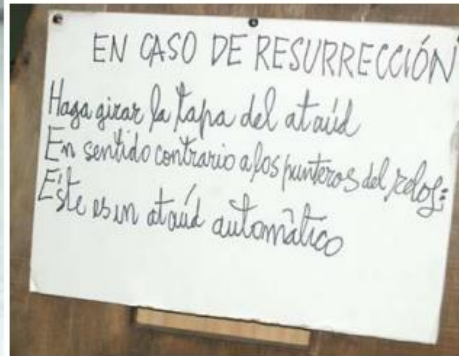 EN CASO DE RESURRECCIÓN
Haga girar la tapa del ataúd
En sentido contrario a los punteros del reloj:
Éste es un ataúd automático